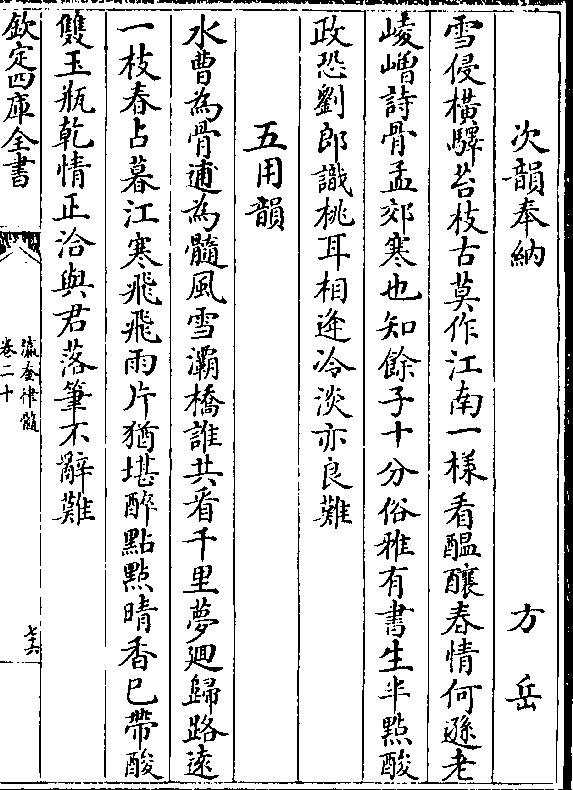 次韻奉納　方岳
雪侵橫驛苔枝古莫作江南一樣看醖釀春情何遜老
崚嶒詩骨孟郊寒也知餘子十分俗稚有書生半㸃酸
政恐劉郎識桃耳相逢冷淡亦良難
五用韻
水曹為骨逋為髓風雪灞橋誰共看千里夢廻歸路逺
一枝春占暮江寒飛飛雨片猶堪醉㸃㸃晴香已帶酸
雙玉瓶乾情正洽與君落筆不辭難
欽定四庫全書
瀛奎律髓
卷二十